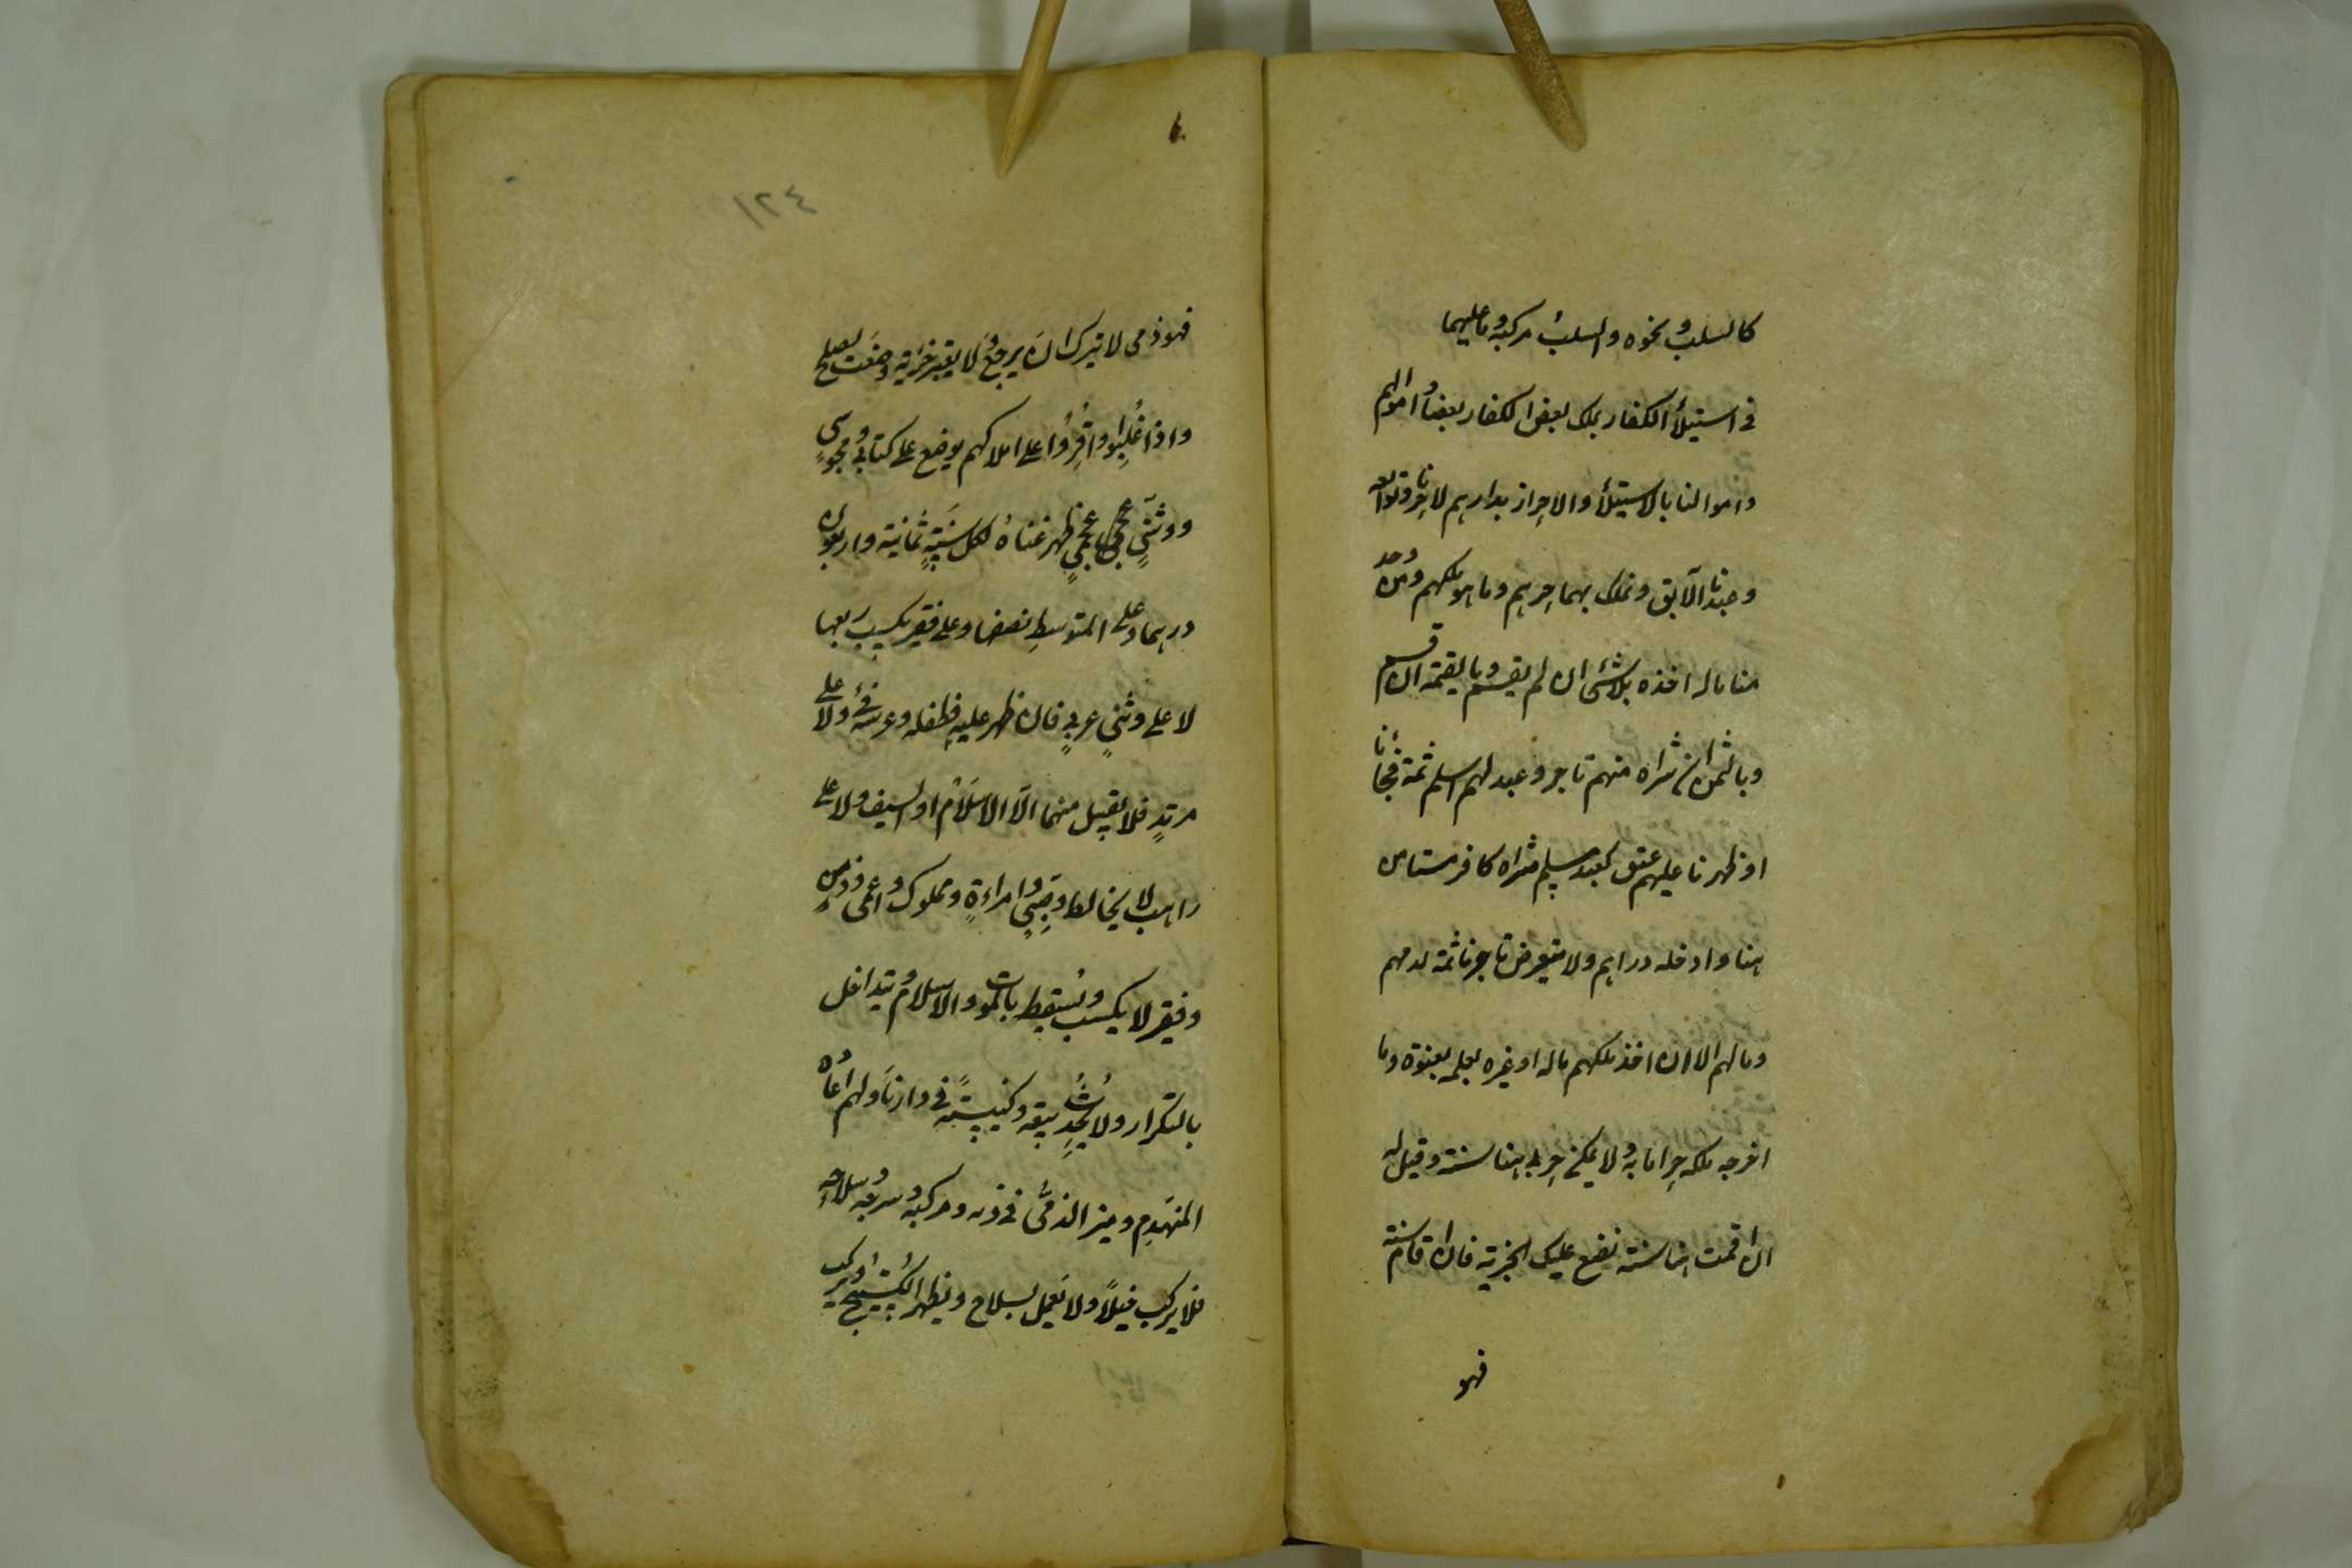 كالسلب ونحوه والسلب مركبه وما عليهما
فى استيلأ الكفار يملك بعض الكفار بعضا واموالهم
واموالنا بالاستيلأ والاحراز بدارهم لا حرنا وتوابعه
وعبدنا الآبق ونملك بهما حرهم وما هو ملكهم ومن وجد
منا ماله اخذه بلا شئ ان لم يقسم وبالقيمة ان قسم
وبالثمن ان شراه منهم تاجر وعبد لهم اسلم ثمة فجأنا
او ظهرنا عليهم عتق كعبد مسلم شراه كافر مستامن
هنا وادخله دراهم ولا يتعرض تاجرنا ثمة لدمهم
ومالهم الا ان اخذ ملكهم ماله او غيره بعلمه بعنوة وما
اخرجه ملكه حراما به ولا يمكن حربى هنا سنة وقيل له
ان اقمت هنا سنة نضع عليك الجزية فان اقام سنة
فهو
١٢٤
فهو ذمى لا يترك ان يرجع ولا يغير جزية وضعت لصلح
واذا غُلِبوا واقِرُّوا على املاكهم يوضع على كتابى ومجوسى
ووثنىٍ عجمىٍ ظهر غناه لكل سنةٍ ثمانية واربعون
درهما وعلى المتوسط نصفها وعلى فقير يكسب ربعها
لا على وثنىٍ عربىٍ فان ظهر عليه فطفله وعرسه فئ ولا على
مرتدٍ فلا يقبل منهما الّا الاسلام او السيف ولا على
راهب لا يخالط وصبىٍ وامراءةٍ ومملوك واعمى وزمنٍ
وفقير لا يكسب ويسقط بالموت والاسلام ويتداخل
بالتكرار ولا يُحدِث بيعة وكنيسة فى دارنا ولهم اعاده
المنهدم وميز الذمى فى زيه ومركبه وسرجه وسلاحه
فلا يركب خيلاً ولا يعمل بسلاح ويظهر الكستيج ويركب